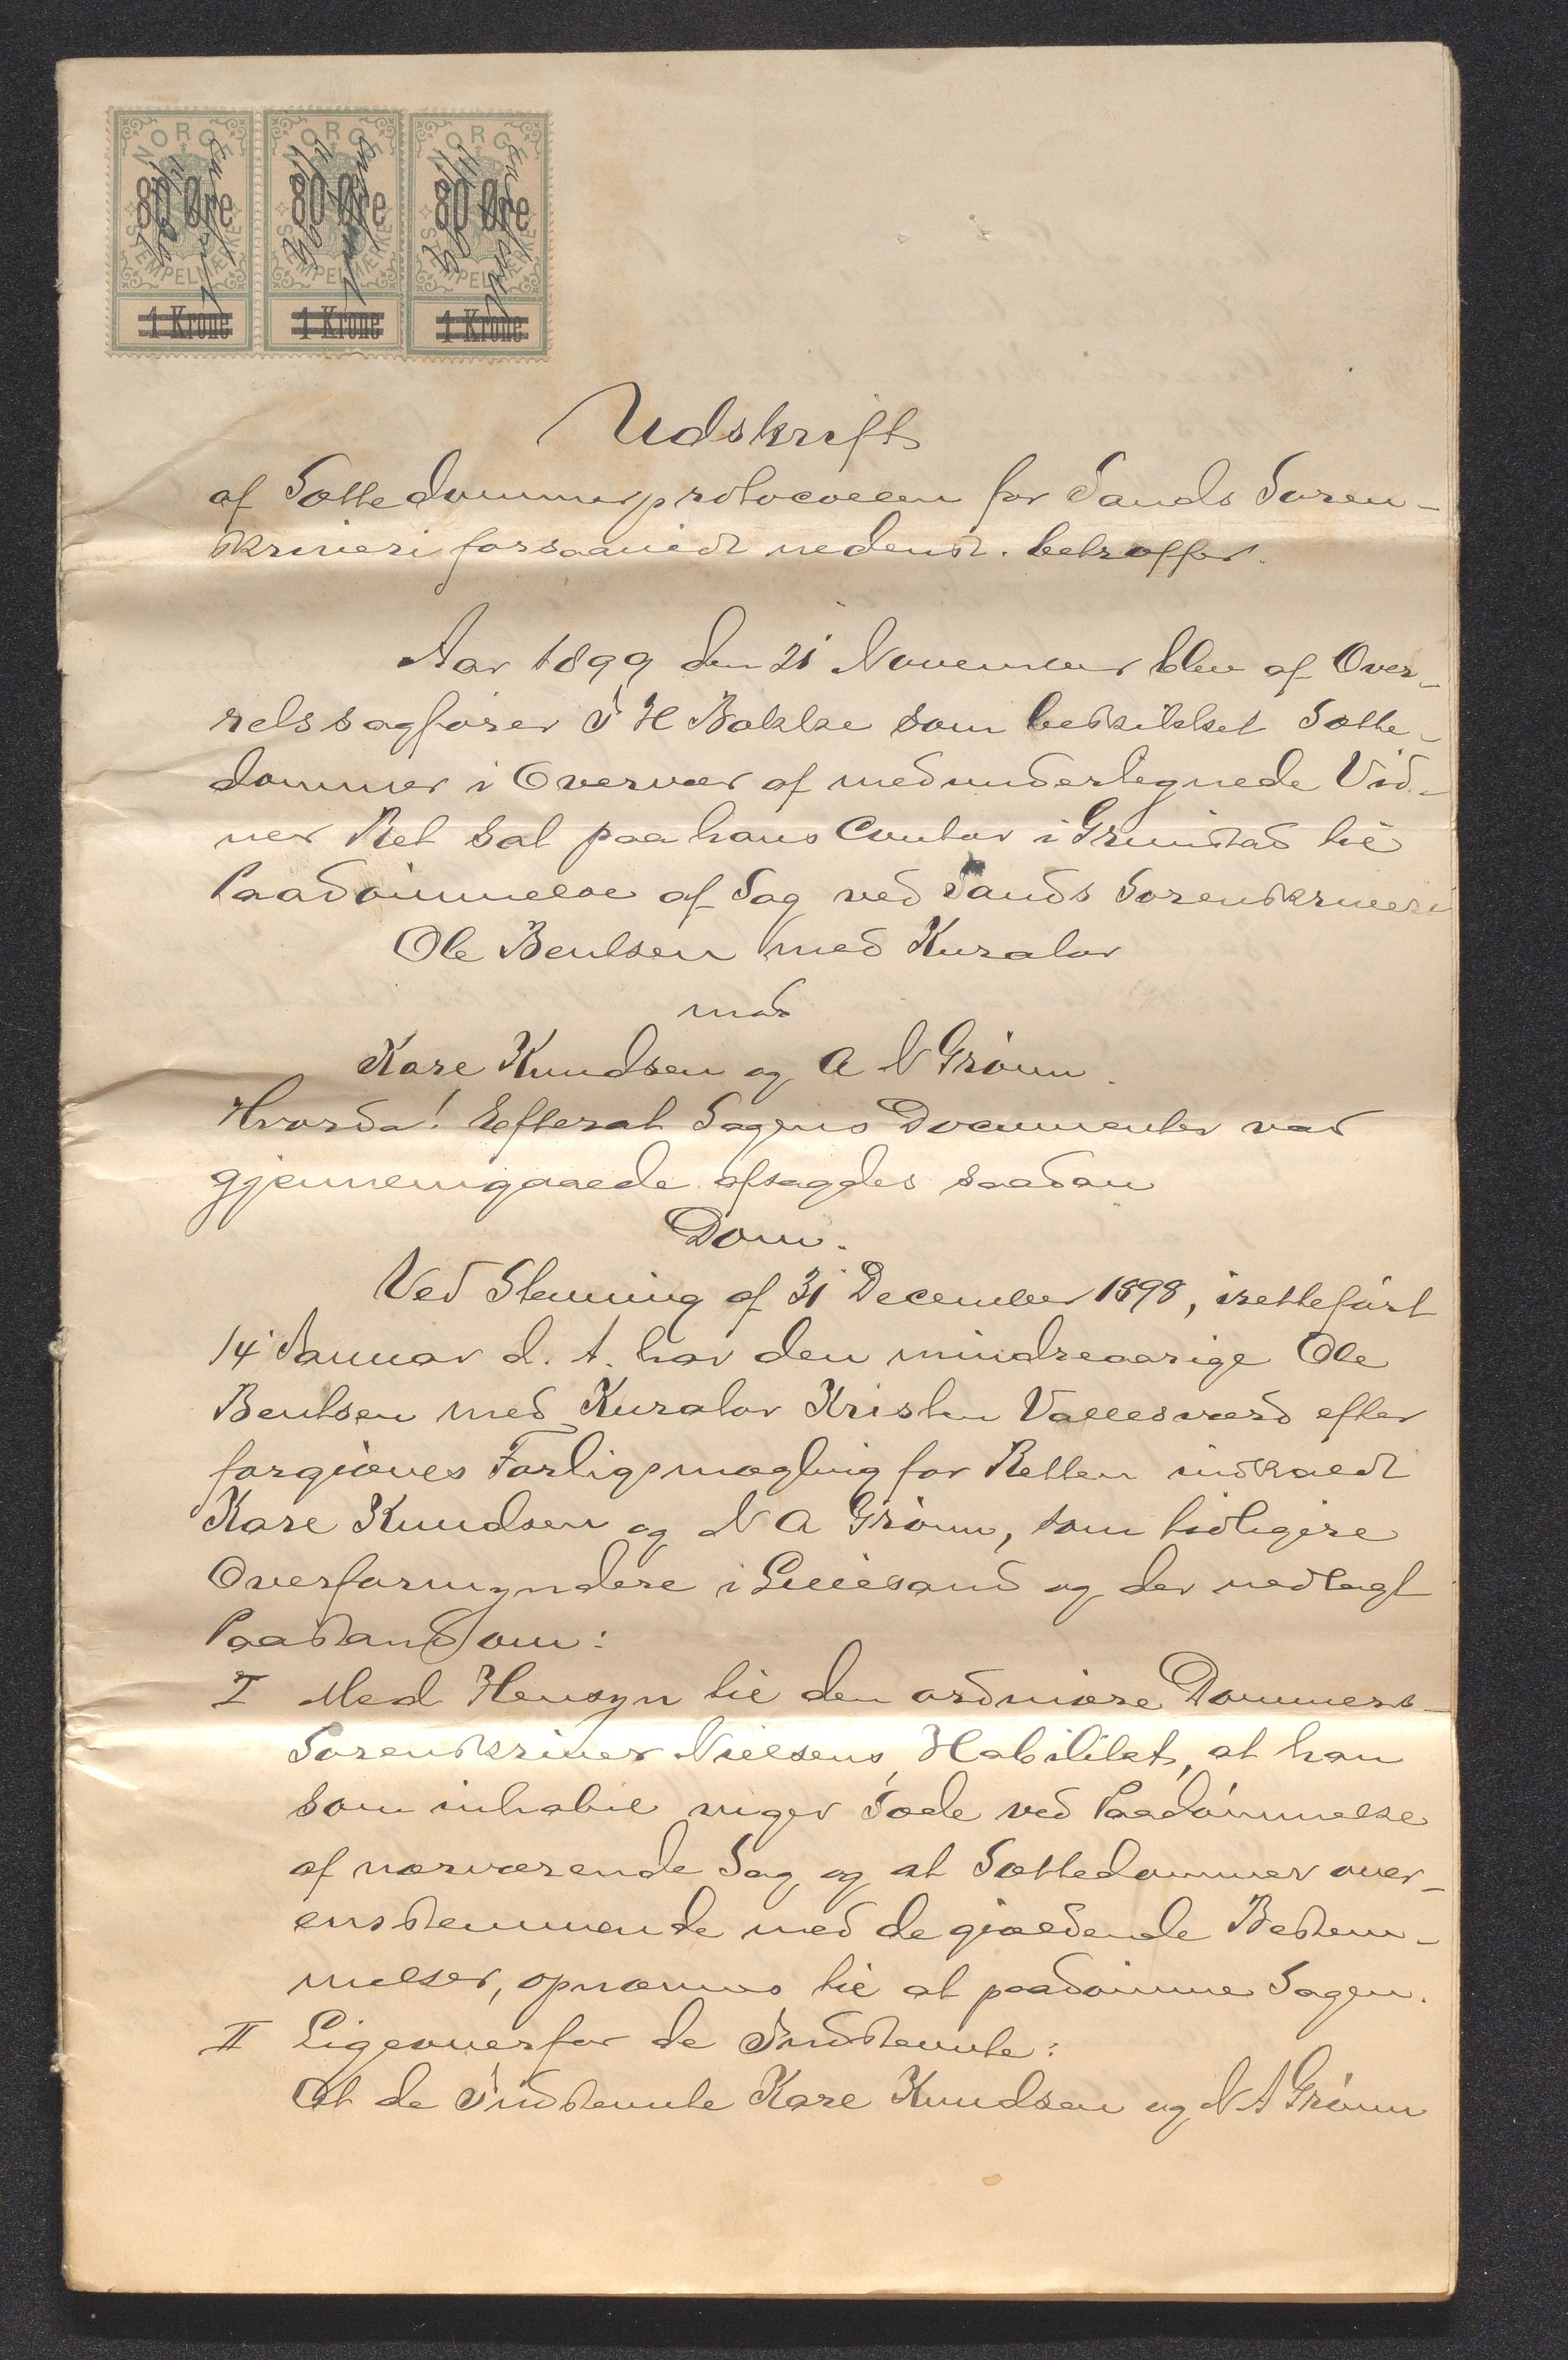 NORGE NORGE NORGE
80 Øre 80 Øre 80 Øre
STEMPELMÆRKE STEMPELMÆRKE STEMPELMÆRKE
1 Krone 1 Krone 1 Krone
Udskrift
af Sættedommerprotocollen for Sands Soren-
skriveri forsaavidt nedenst. betræffer.
Aar 1899 den 21 November blev af Over-
retssagfører I H Bakke som beskikket Sætte-
dommer i Overvær af medundertegnede Vid-
ner Ret sat paa hans Contor i Grimstad til
Paadømmelse af Sag ved Sands Sorenskriveri
Ole Bentsen med Kurator
mod
Kare Knudsen og A N Grønn.
Hvorda! Efterat Sagens Documenter var
gjennemgaaede afsagdes saadan
Dom.
Ved Stemning af 31 December 1898, iretteført
14 Januar d. A. har den mindreaarige Ole
Bentsen med Kurator Kristen Vallesværd efter
forgjæves Forligsmægling for Retten indkaldt
Kare Knudsen og N A Grønn, som tidligere
Overformyndere i Lillesand og der nedlagt
Paastand om:
I Med Hensyn til den ordinære Dommers-
Sorenskriver Nielsens, Habilitet, at han
som inhabil viger Sæde ved Paadømmelse
af nærværende Sag og at Sættedommer over-
ensstemmende med de gjældende Bestem-
melser, opnævnes til at paadømme Sagen.
II Ligeoverfor de Indstevnte:
At de Indstevnte Kare Knudsen og N A Grønn